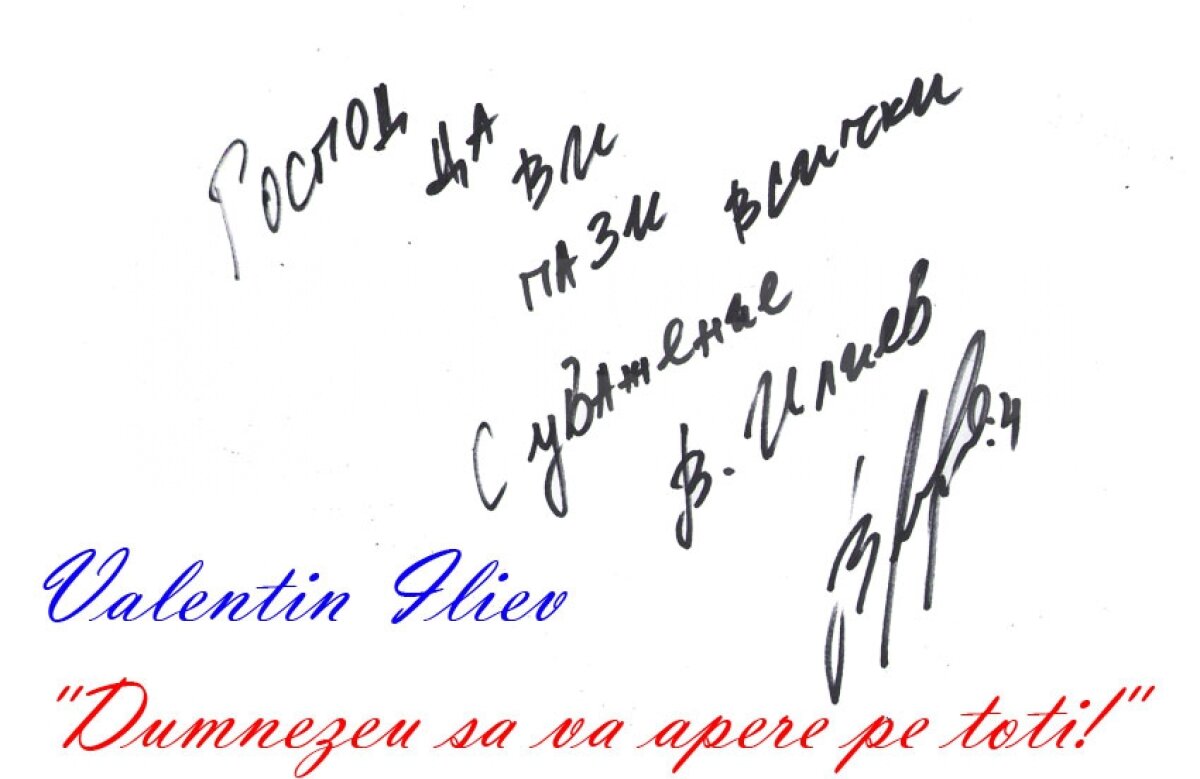 Господ да ви
пази всички
С уважение
В. Илиев
Valentin Iliev
"Dumnezeu sa va apere pe toti!"